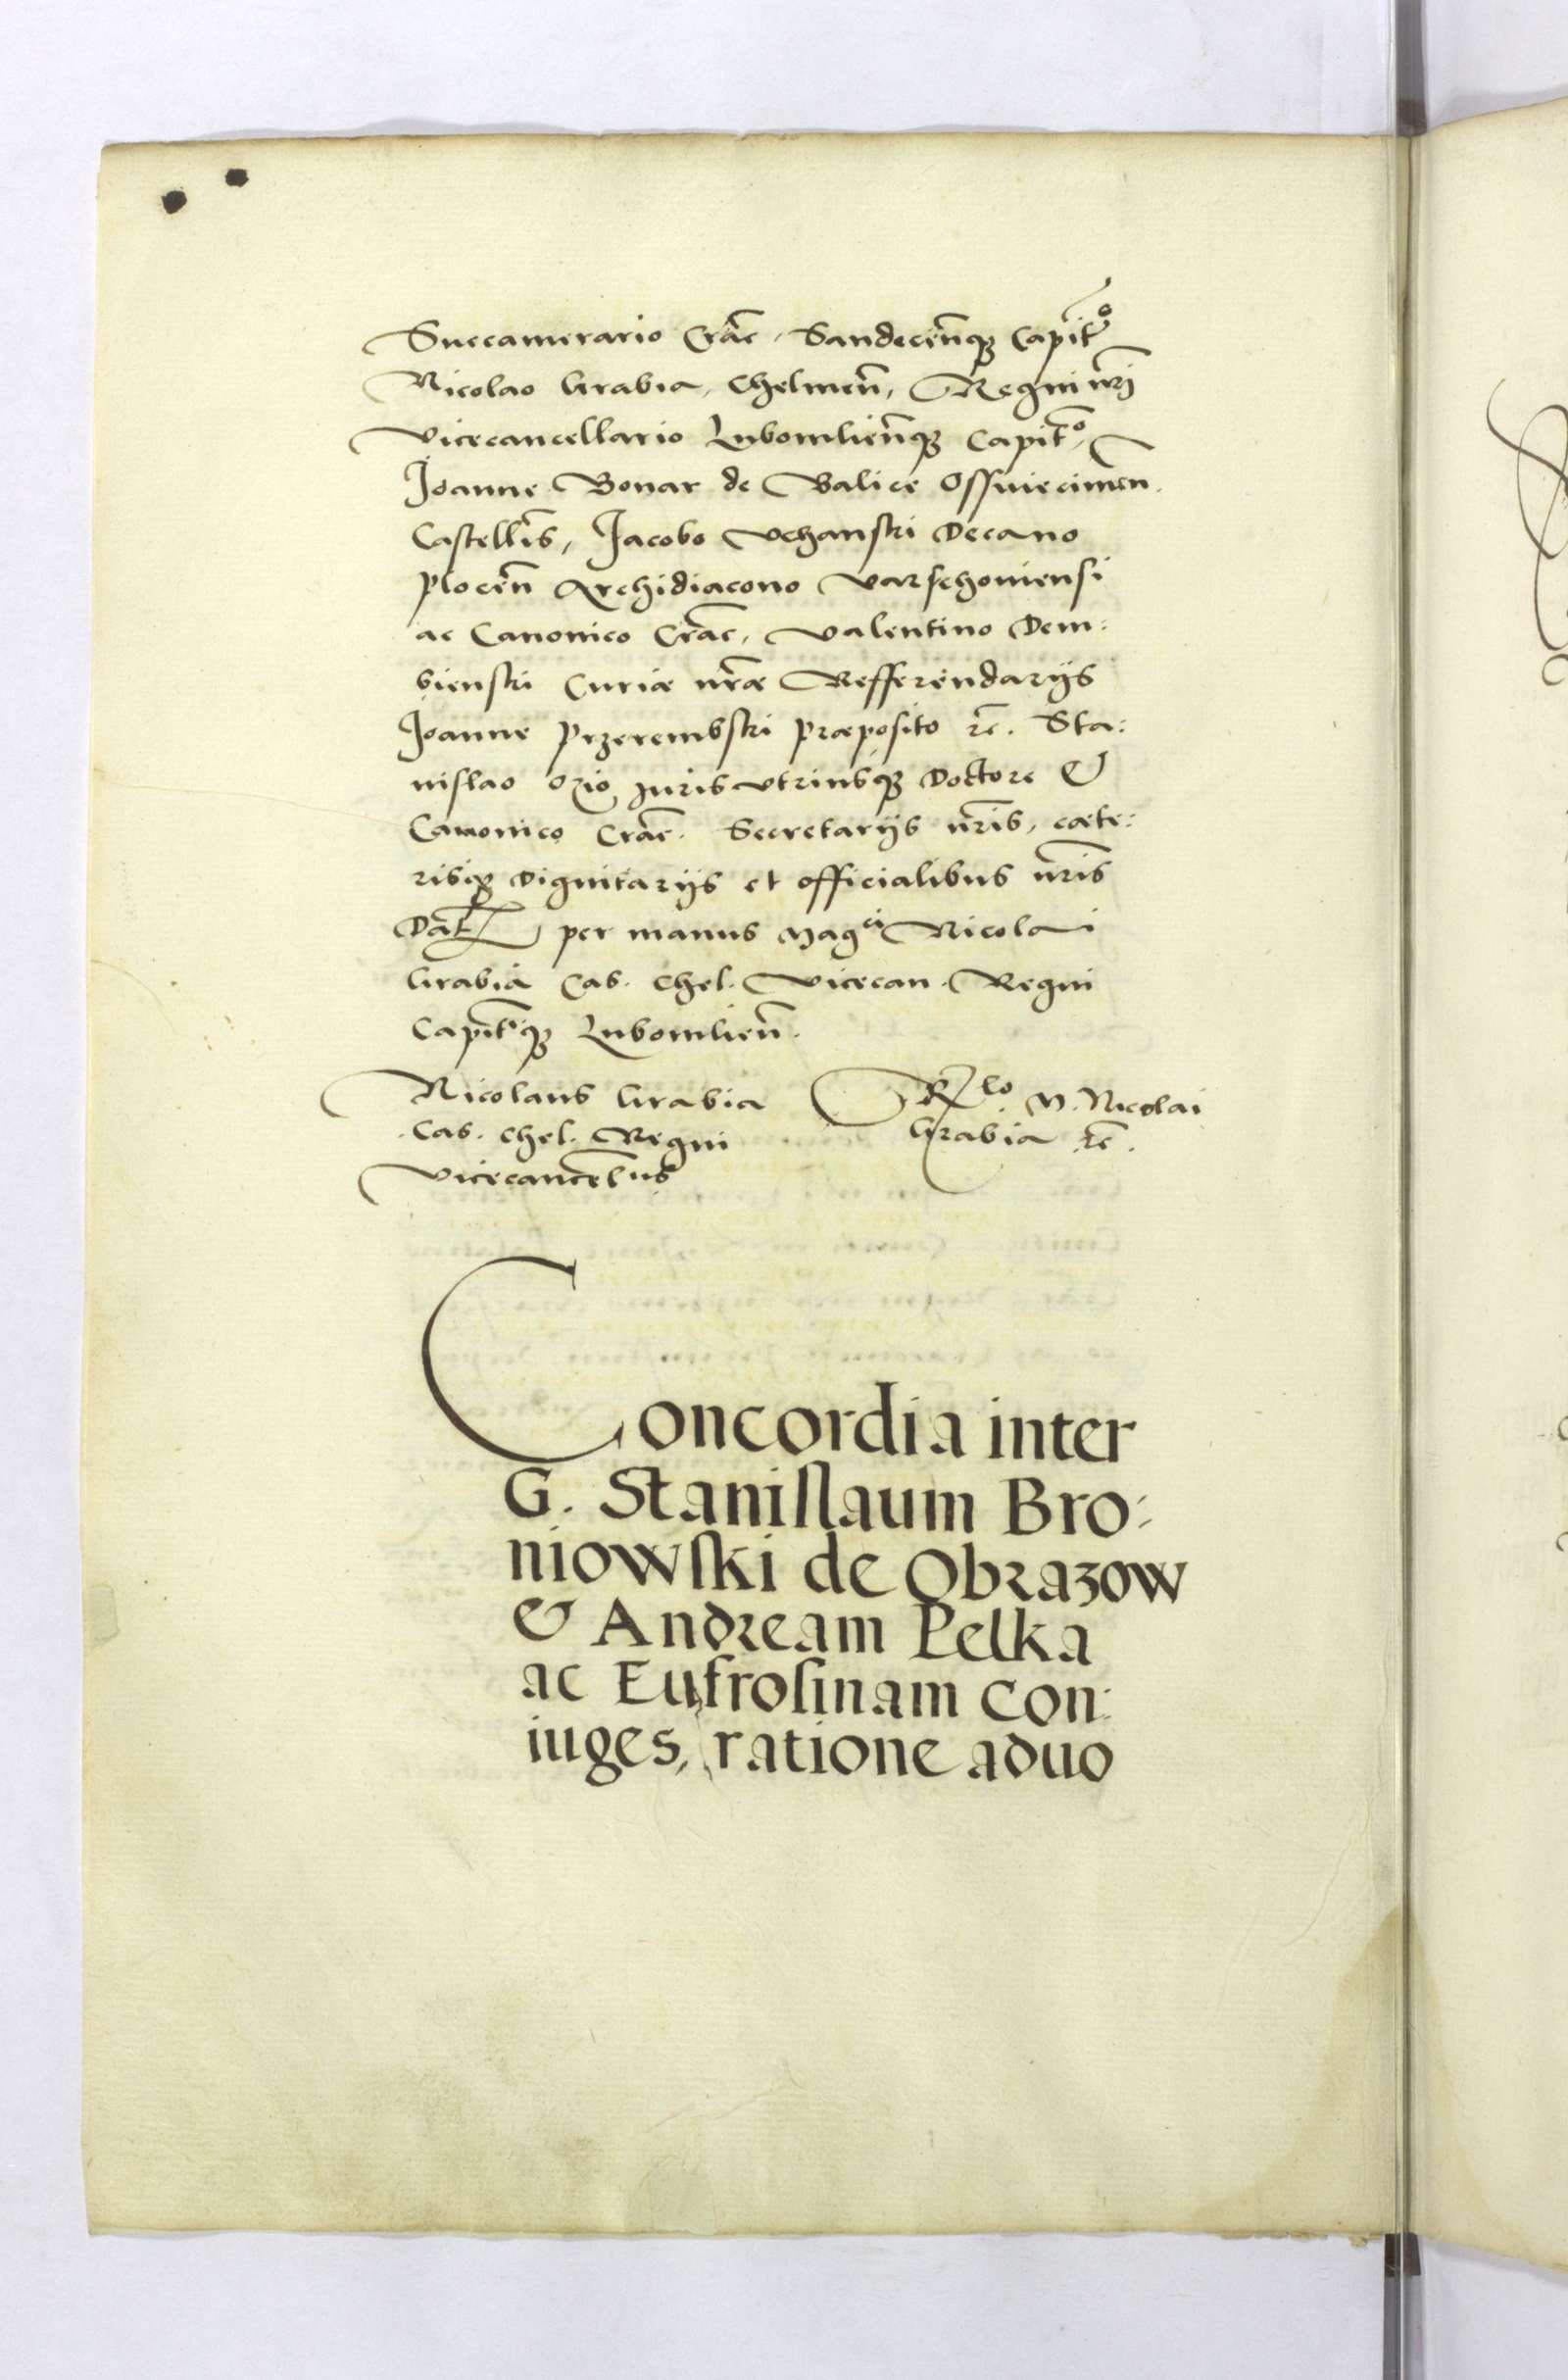 Succamerario Crac̄, Sandecen̄q₃ Capit̄o
Nicolao Grabia, Chelmen̄, Regni nr̄i
Vicecancellario Lubomlien̄q₃ Capit̄o,
Joanne Bonar de Balice Osswiecimen.
Castellīs, Jacobo Vchanski Decano
plocen̄ Archidiacono Varschoniensi
ac Canonico Crac̄, Valentino Dem:
bienski Curiæ nr̄æ Refferendarijs
Joanne Przerembski præposito rc̄. Sta:
nislao Ozio Juris vtriusq₃ Doctore &
Canonico Crac̄. Secretarijs nr̄is, cæte:
risq₃ Dignitarijs et officialibus nr̄is
Dat̄ per manus Mag^ci Nicolai
Grabia Cas. Chel. Vicecan. Regni
Capit̄iq₃ Lubomlien̄.
Nicolaus Grabia
Cas. Chel. Regni
Vicecancel̄lus
R^lo M. Nicolai
Grabia rc̄.
Concordia inter
G. Stanislaum Bro:
niowski de Obrazow
& Andream Pelka
ac Eufrosinam Con:
iuges, ratione aduo